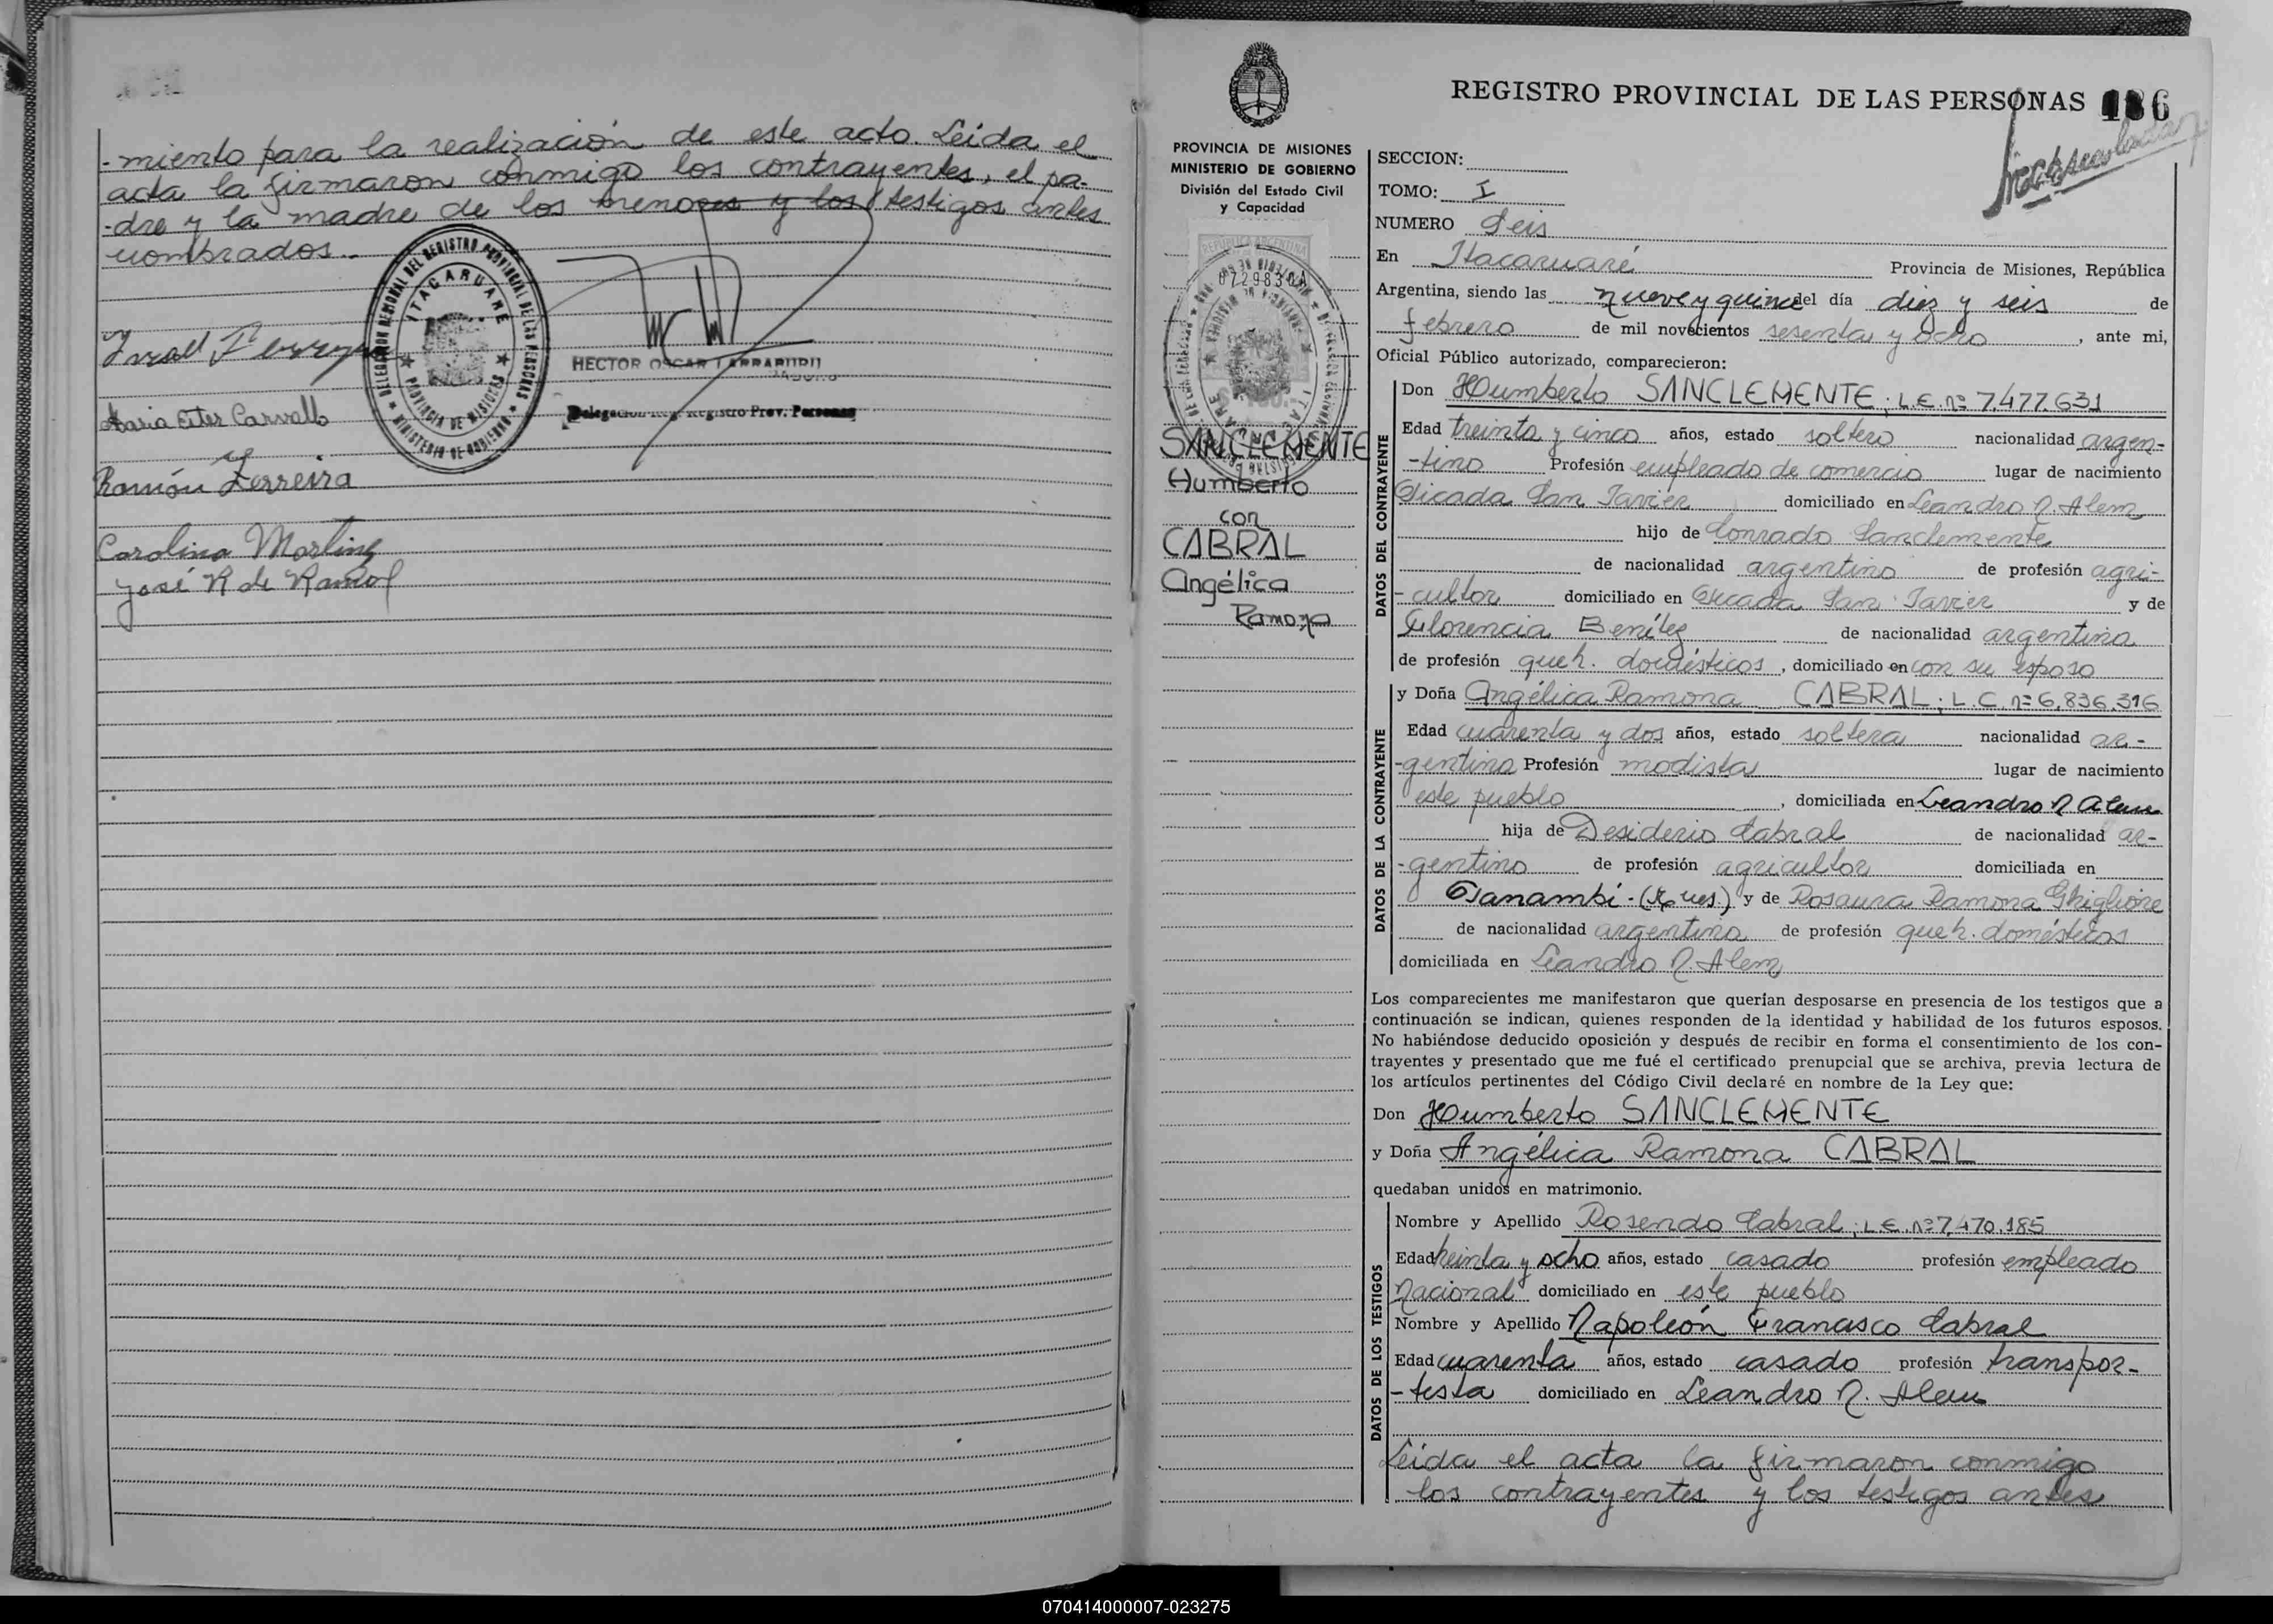 -miento para la realización de este acto. Leida el
acta la firmaron conmigo los contrayentes, el pa-
-dre y la madre de los menores y los testigos antes
nombrados..
DELEGACION REGIONAL DEL REGISTRO PROVINCIAL DE LAS PERSONAS
ITACARUARE
PROVINCIA DE MISIONES
MINISTERIO DE GOBIERNO
HECTOR OSCAR LARRABURU
Delegación Reg. Registro Prov. Personas
Maria Ester Carvallo
Ramón Ferreira
Carolina Martinz
José R de Ramol
PROVINCIA DE MISIONES
MINISTERIO DE GOBIERNO
División del Estado Civil
y Capacidad
REPUBLICA ARGENTINA
SANCLEMENTE
Humberto
con
CABRAL
Angélica
Ramona
REGISTRO PROVINCIAL DE LAS PERSONAS 186
SECCION:
TOMO: I
NUMERO Seis
En Itacaruaré Provincia de Misiones, República
Argentina, siendo las nueve y quince del día diez y seis de
febrero de mil novecientos sesenta y ocho, ante mi,
Oficial Público autorizado, comparecieron:
DATOS DEL CONTRAYENTE
Don Humberto SANCLEMENTE; L.E. nº 7.477.631
Edad treinta y cinco años, estado soltero nacionalidad argen-
-tino Profesión empleado de comercio lugar de nacimiento
Picada San Javier domiciliado en Leandro N. Alem
hijo de Conrado Sanclemente
de nacionalidad argentino de profesión agri-
-cultor domiciliado en Picada San Javier y de
Florencia Benítez de nacionalidad argentina
de profesión queh. domésticos, domiciliado en con su esposo
DATOS DE LA CONTRAYENTE
y Doña Angélica Ramona CABRAL; L.C. nº 6.836.316
Edad cuarenta y dos años, estado soltera nacionalidad ar-
-gentina Profesión modista lugar de nacimiento
este pueblo, domiciliada en Leandro N Alem
hija de Desiderio Cabral de nacionalidad ar-
-gentino de profesión agricultor domiciliada en
Panambí - y de Rosaura Ramona Ghiglione
de nacionalidad argentina de profesión queh. domésticos
domiciliada en Leandro N. Alem
Los comparecientes me manifestaron que querían desposarse en presencia de los testigos que a
continuación se indican, quienes responden de la identidad y habilidad de los futuros esposos.
No habiéndose deducido oposición y después de recibir en forma el consentimiento de los con-
trayentes y presentado que me fué el certificado prenupcial que se archiva, previa lectura de
los artículos pertinentes del Código Civil declaré en nombre de la Ley que:
Don Humberto SANCLEMENTE
y Doña Angélica Ramona CABRAL
quedaban unidos en matrimonio.
DATOS DE LOS TESTIGOS
Nombre y Apellido Rosendo Cabral; L.E. nº 7.470.185
Edad treinta y ocho años, estado casado profesión empleado
Nacional domiciliado en este pueblo
Nombre y Apellido Napoleón Francisco Cabral
Edad cuarenta años, estado casado profesión transpor-
-tista domiciliado en Leandro N. Alem
Leida el acta la firmaron conmigo
los contrayentes y los testigos antes
070414000007-023275